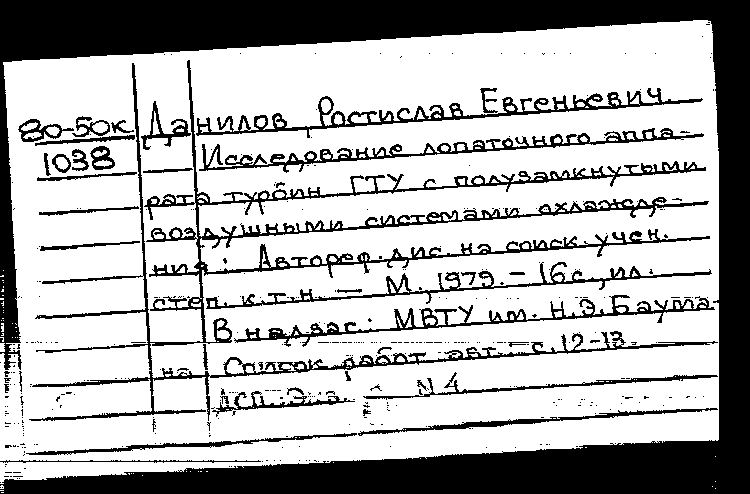 80-50к Данилов, Ростислав Евгеньевич.
1038 Исследование лопаточного аппа-
рата турбин ГТУ с полузамкнутыми
воздушными системами охлажде-
ния: Автореф. дис. на соиск. учен.
степ. к.т.н. — М., 1979. - 16 с., ил.
В надзаг.: МВТУ им. Н.Э. Баума-
на Список работ авт.: с. 12-13.
ДСП. Э-а. N4